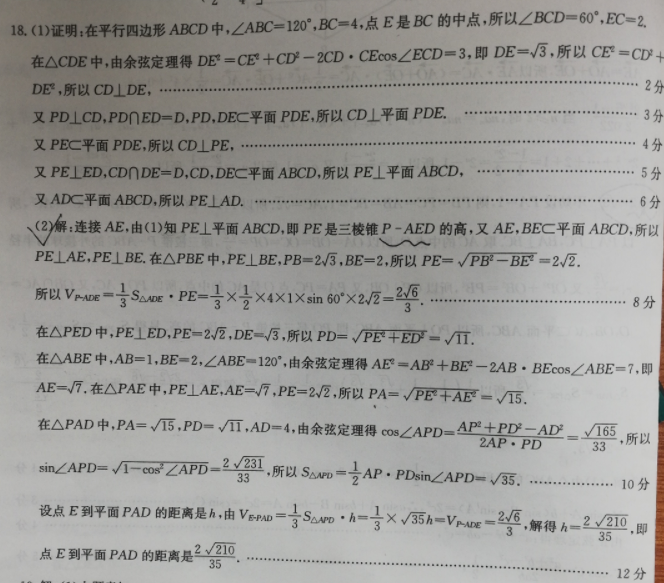 18. (1)证明:在平行四边形 ABCD 中,∠ABC=120°,BC=4,点 E 是 BC 的中点,所以∠BCD=60°,EC=2.
在△CDE 中,由余弦定理得 DE²=CE²+CD²-2CD·CEcos∠ECD=3,即 DE=√3,所以 CE²=CD²+
DE²,所以 CD⊥DE, …… 2 分
又 PD⊥CD,PD∩ED=D,PD,DE⊂平面 PDE,所以 CD⊥平面 PDE. …… 3 分
又 PE⊂平面 PDE,所以 CD⊥PE, …… 4 分
又 PE⊥ED,CD∩DE=D,CD,DE⊂平面 ABCD,所以 PE⊥平面 ABCD, …… 5 分
又 AD⊂平面 ABCD,所以 PE⊥AD. …… 6 分
(2)解:连接 AE,由(1)知 PE⊥平面 ABCD,即 PE 是三棱锥 P-AED 的高,又 AE,BE⊂平面 ABCD,所以
PE⊥AE,PE⊥BE. 在△PBE 中,PE⊥BE,PB=2√3,BE=2,所以 PE=√(PB²-BE²)=2√2.
所以 V_{P-ADE}=1/3 S_{△ADE}·PE=1/3×1/2×4×1×sin 60°×2√2=2√6/3. …… 8 分
在△PED 中,PE⊥ED,PE=2√2,DE=√3,所以 PD=√(PE²+ED²)=√11.
在△ABE 中,AB=1,BE=2,∠ABE=120°,由余弦定理得 AE²=AB²+BE²-2AB·BEcos∠ABE=7,即
AE=√7. 在△PAE 中,PE⊥AE,AE=√7,PE=2√2,所以 PA=√(PE²+AE²)=√15.
在△PAD 中,PA=√15,PD=√11,AD=4,由余弦定理得 cos∠APD=(AP²+PD²-AD²)/(2AP·PD)=√165/33,所以
sin∠APD=√(1-cos²∠APD)=2√231/33,所以 S_{△APD}=1/2 AP·PDsin∠APD=√35. …… 10 分
设点 E 到平面 PAD 的距离是 h,由 V_{E-PAD}=1/3 S_{△APD}·h=1/3×√35h=V_{P-ADE}=2√6/3,解得 h=2√210/35,即
点 E 到平面 PAD 的距离是2√210/35. …… 12 分